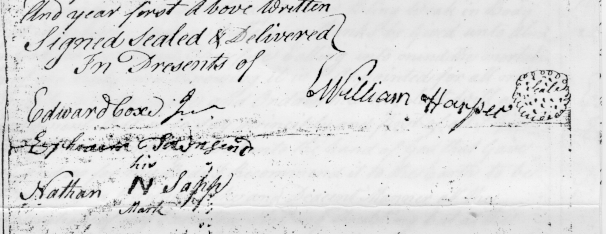 And year first Above Written
Signed Sealed & Delivered
In Presents of
Edward Coxe Jun William Harper
Seale
Ephraim Townsend
his
Nathan N Sapp
Mark